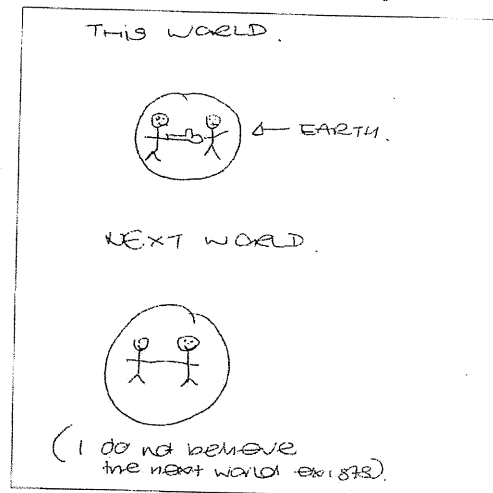 THIS WORLD.
EARTH.
NEXT WORLD.
(I do not believe
the next world exists).